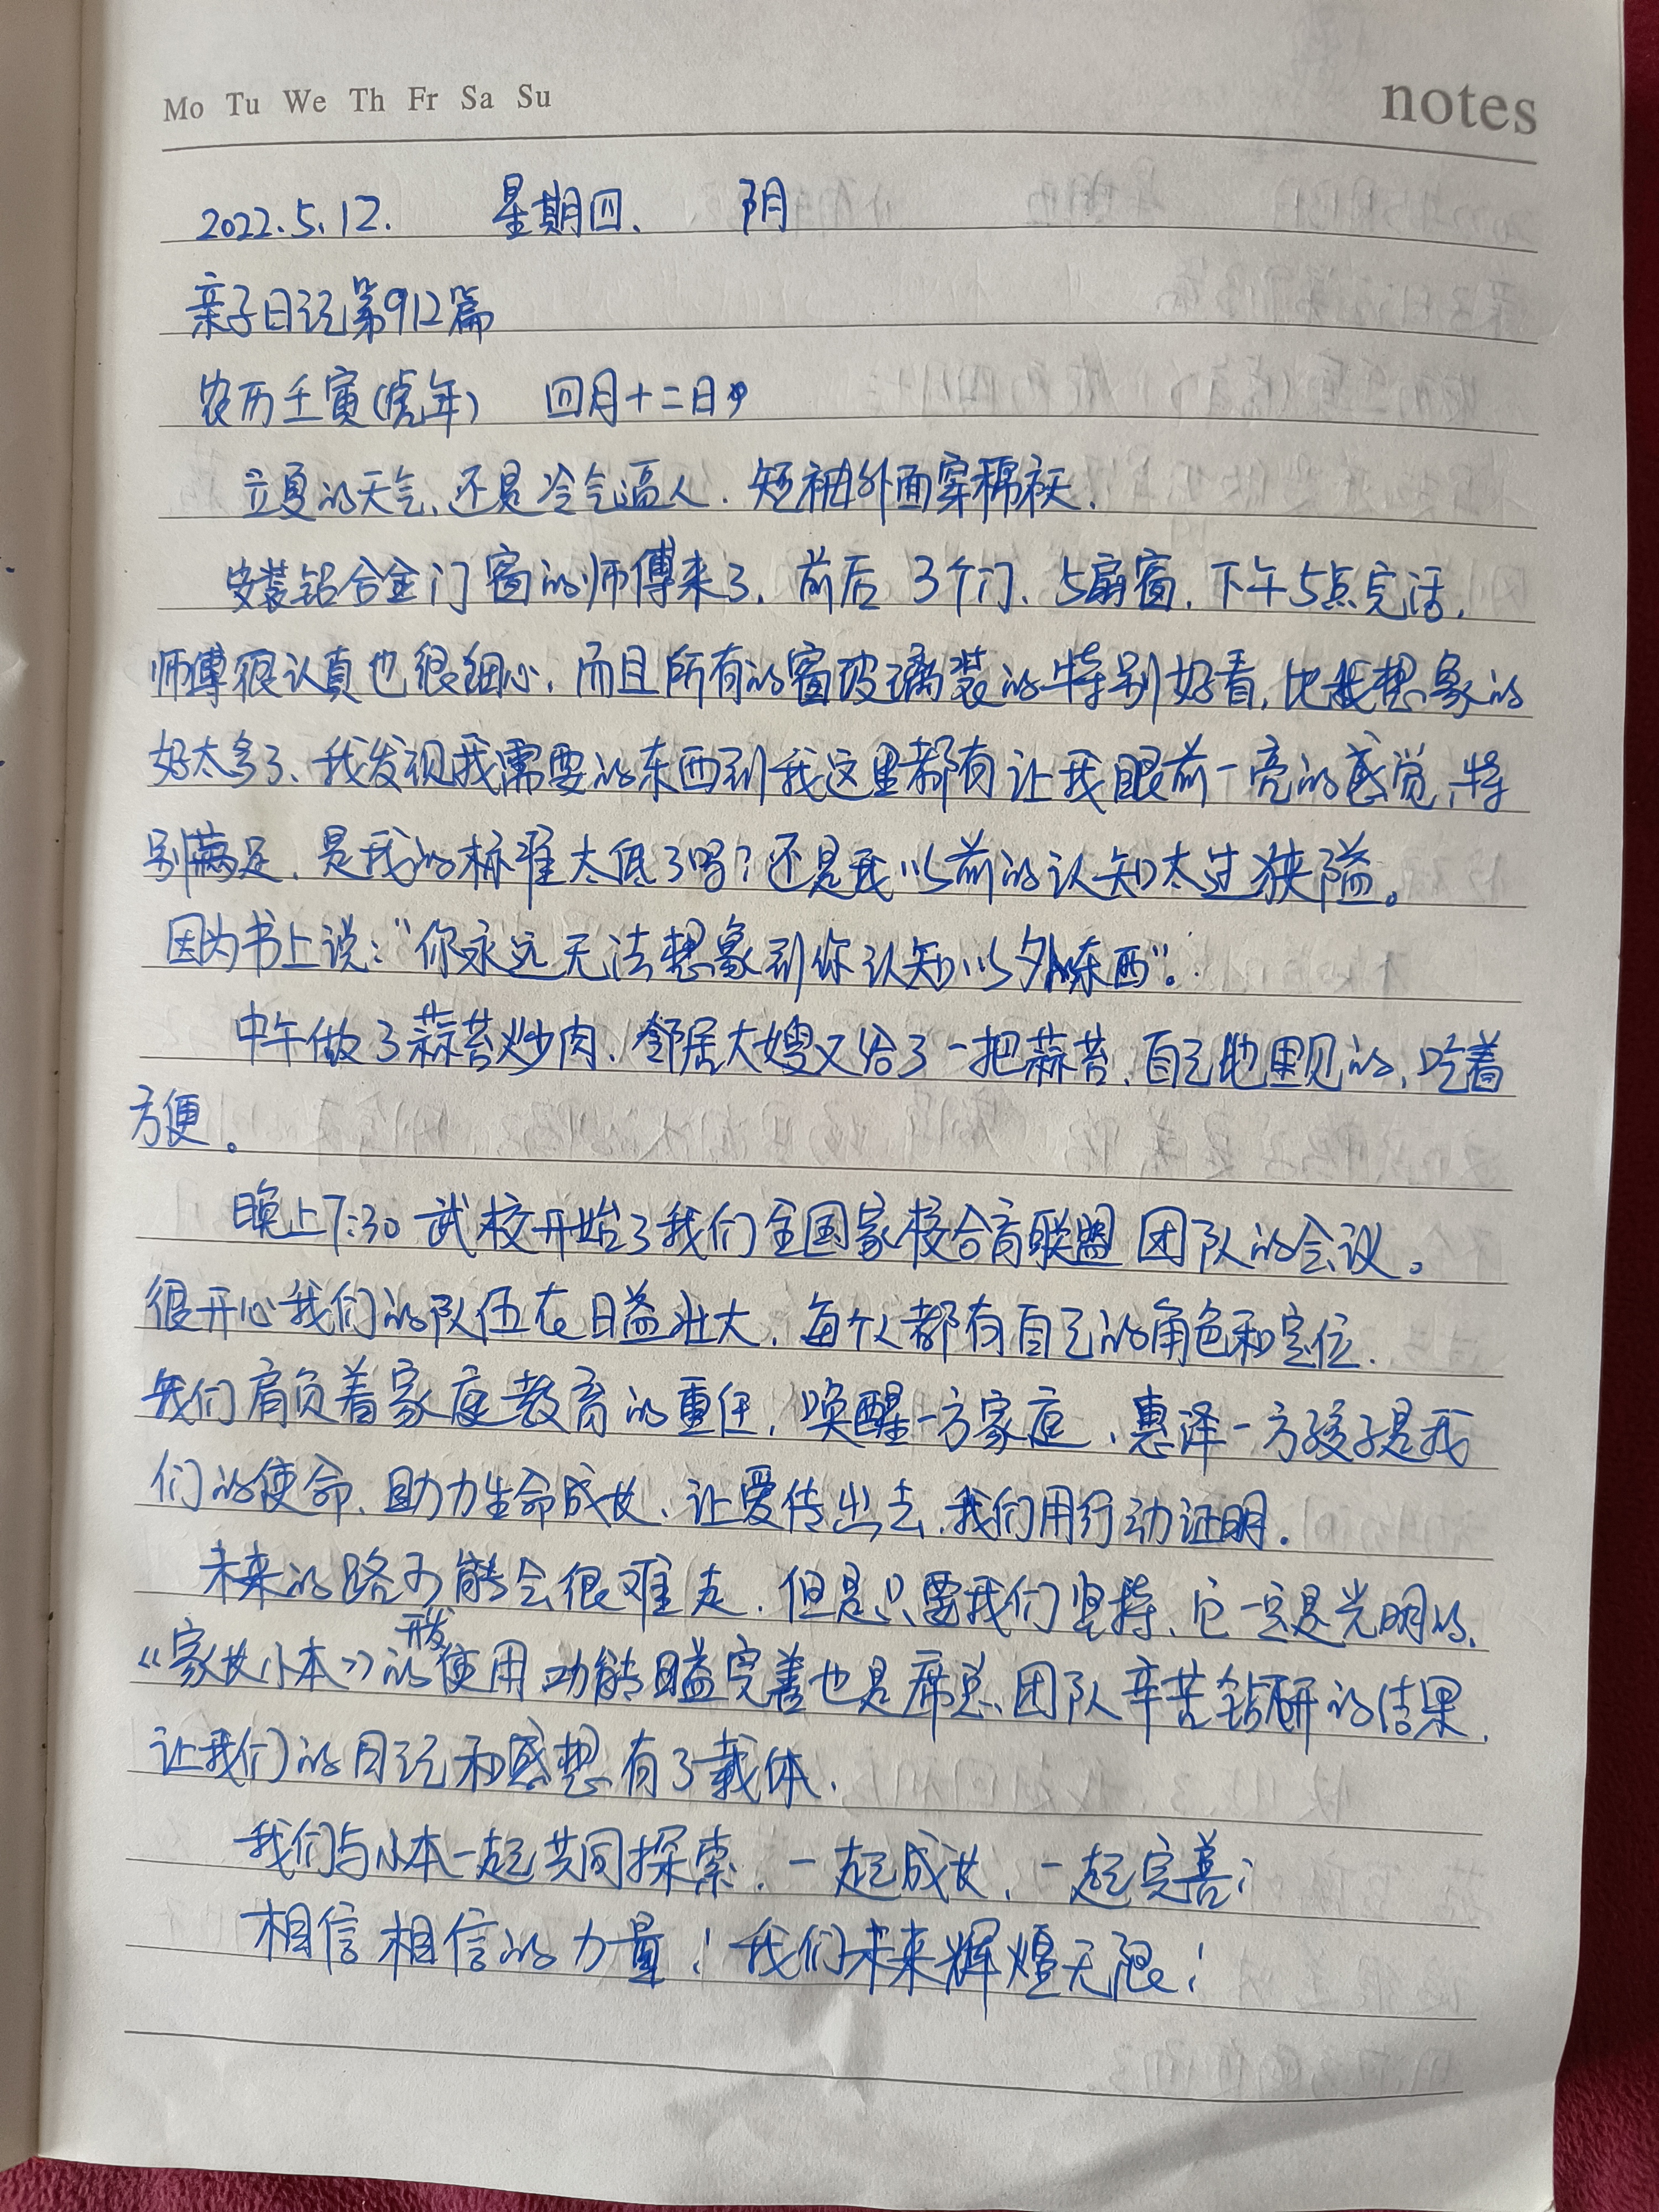 Mo Tu We Th Fr Sa Su
notes
2022.5.12. 星期四. 阴
亲子日记第912篇
农历壬寅(虎年) 四月十二日
立夏的天气,还是冷气逼人.短袖外面穿棉袄.
安装铝合金门窗的师傅来了.前后3个门、5扇窗.下午5点完活,
师傅很认真也很细心,而且所有的窗玻璃装的特别好看,比我想象的
好太多了、我发现我需要的东西到我这里都有让我眼前一亮的感觉,特
别满足.是我的标准太低了吗?还是我以前的认知太过狭隘。
因为书上说:“你永远无法想象到你认知以外的东西”。
中午做了蒜苔炒肉、邻居大嫂又给了一把蒜苔,自己地里见的,吃着
方便。
晚上7:30武校开始了我们全国家校合育联盟团队的会议。
很开心我们的队伍在日益壮大,每个人都有自己的角色和定位.
我们肩负着家庭教育的重任,唤醒一方家庭,惠泽一方孩子是我
们的使命、助力生命成长、让爱传出去,我们用行动证明.
未来的路可能会很难走.但是只要我们坚持、它一定是光明的、
开发
《家长小本》的使用功能日益完善也是席总团队辛苦钻研的结果,
让我们的日记和感想有了载体.
我们与小本一起共同探索.一起成长、一起完善;
相信相信的力量!我们未来辉煌无限!